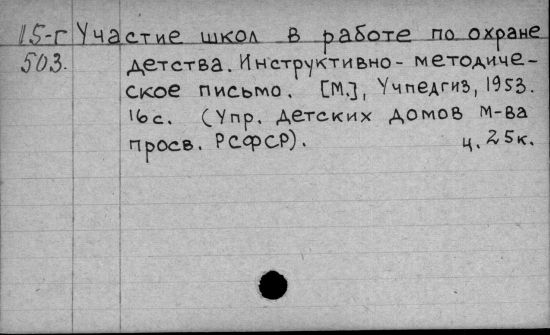 15-г Участие школ в работе по охране
503. детства. Инструктивно-методиче-
ское письмо. [М.], Учпедгиз, 1953.
16с. (Упр. детских домов М-ва
просв. РСФСР). ц. 25к.